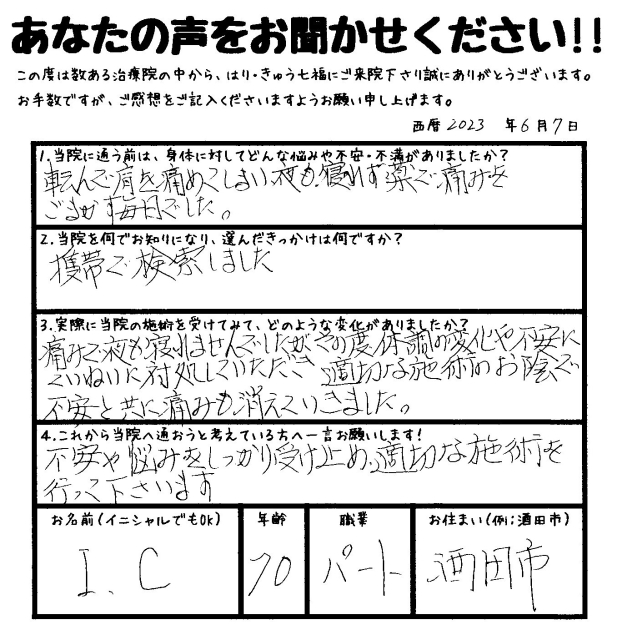 あなたの声をお聞かせください!!
この度は数ある治療院の中から、はり・きゅう七福にご来院下さり誠にありがとうございます。
お手数ですが、ご感想をご記入くださいますようお願い申し上げます。
西暦 2023 年 6 月 7 日
1.当院に通う前は、身体に対してどんな悩みや不安・不満がありましたか?
転んで肩を痛めてしまい夜も寝れず薬で痛みを
ごまかす毎日でした。
2.当院を何でお知りになり、選んだきっかけは何ですか?
携帯で検索しました
3.実際に当院の施術を受けてみて、どのような変化がありましたか?
痛みで夜も寝れませんでしたがその度体調の変化や不安に
ていねいに対処していただき 適切な施術のお陰で
不安と共に痛みも消えていきました。
4.これから当院へ通おうと考えている方へ一言お願いします!
不安や悩みをしっかり受け止め適切な施術を
行って下さいます
お名前(イニシャルでもOK) 年齢 職業 お住まい(例;酒田市)
I.C 70 パート 酒田市